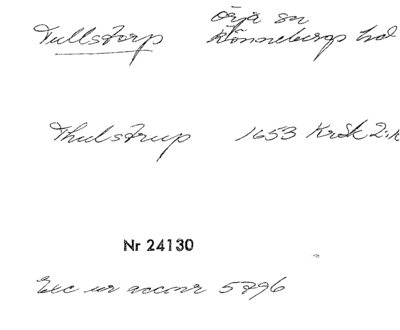 Tullstorp Örja sn
Rönnebergs hd
Thulstrup 1653 KrSk 2:1
Nr 24130
Exc ur accnr 5796